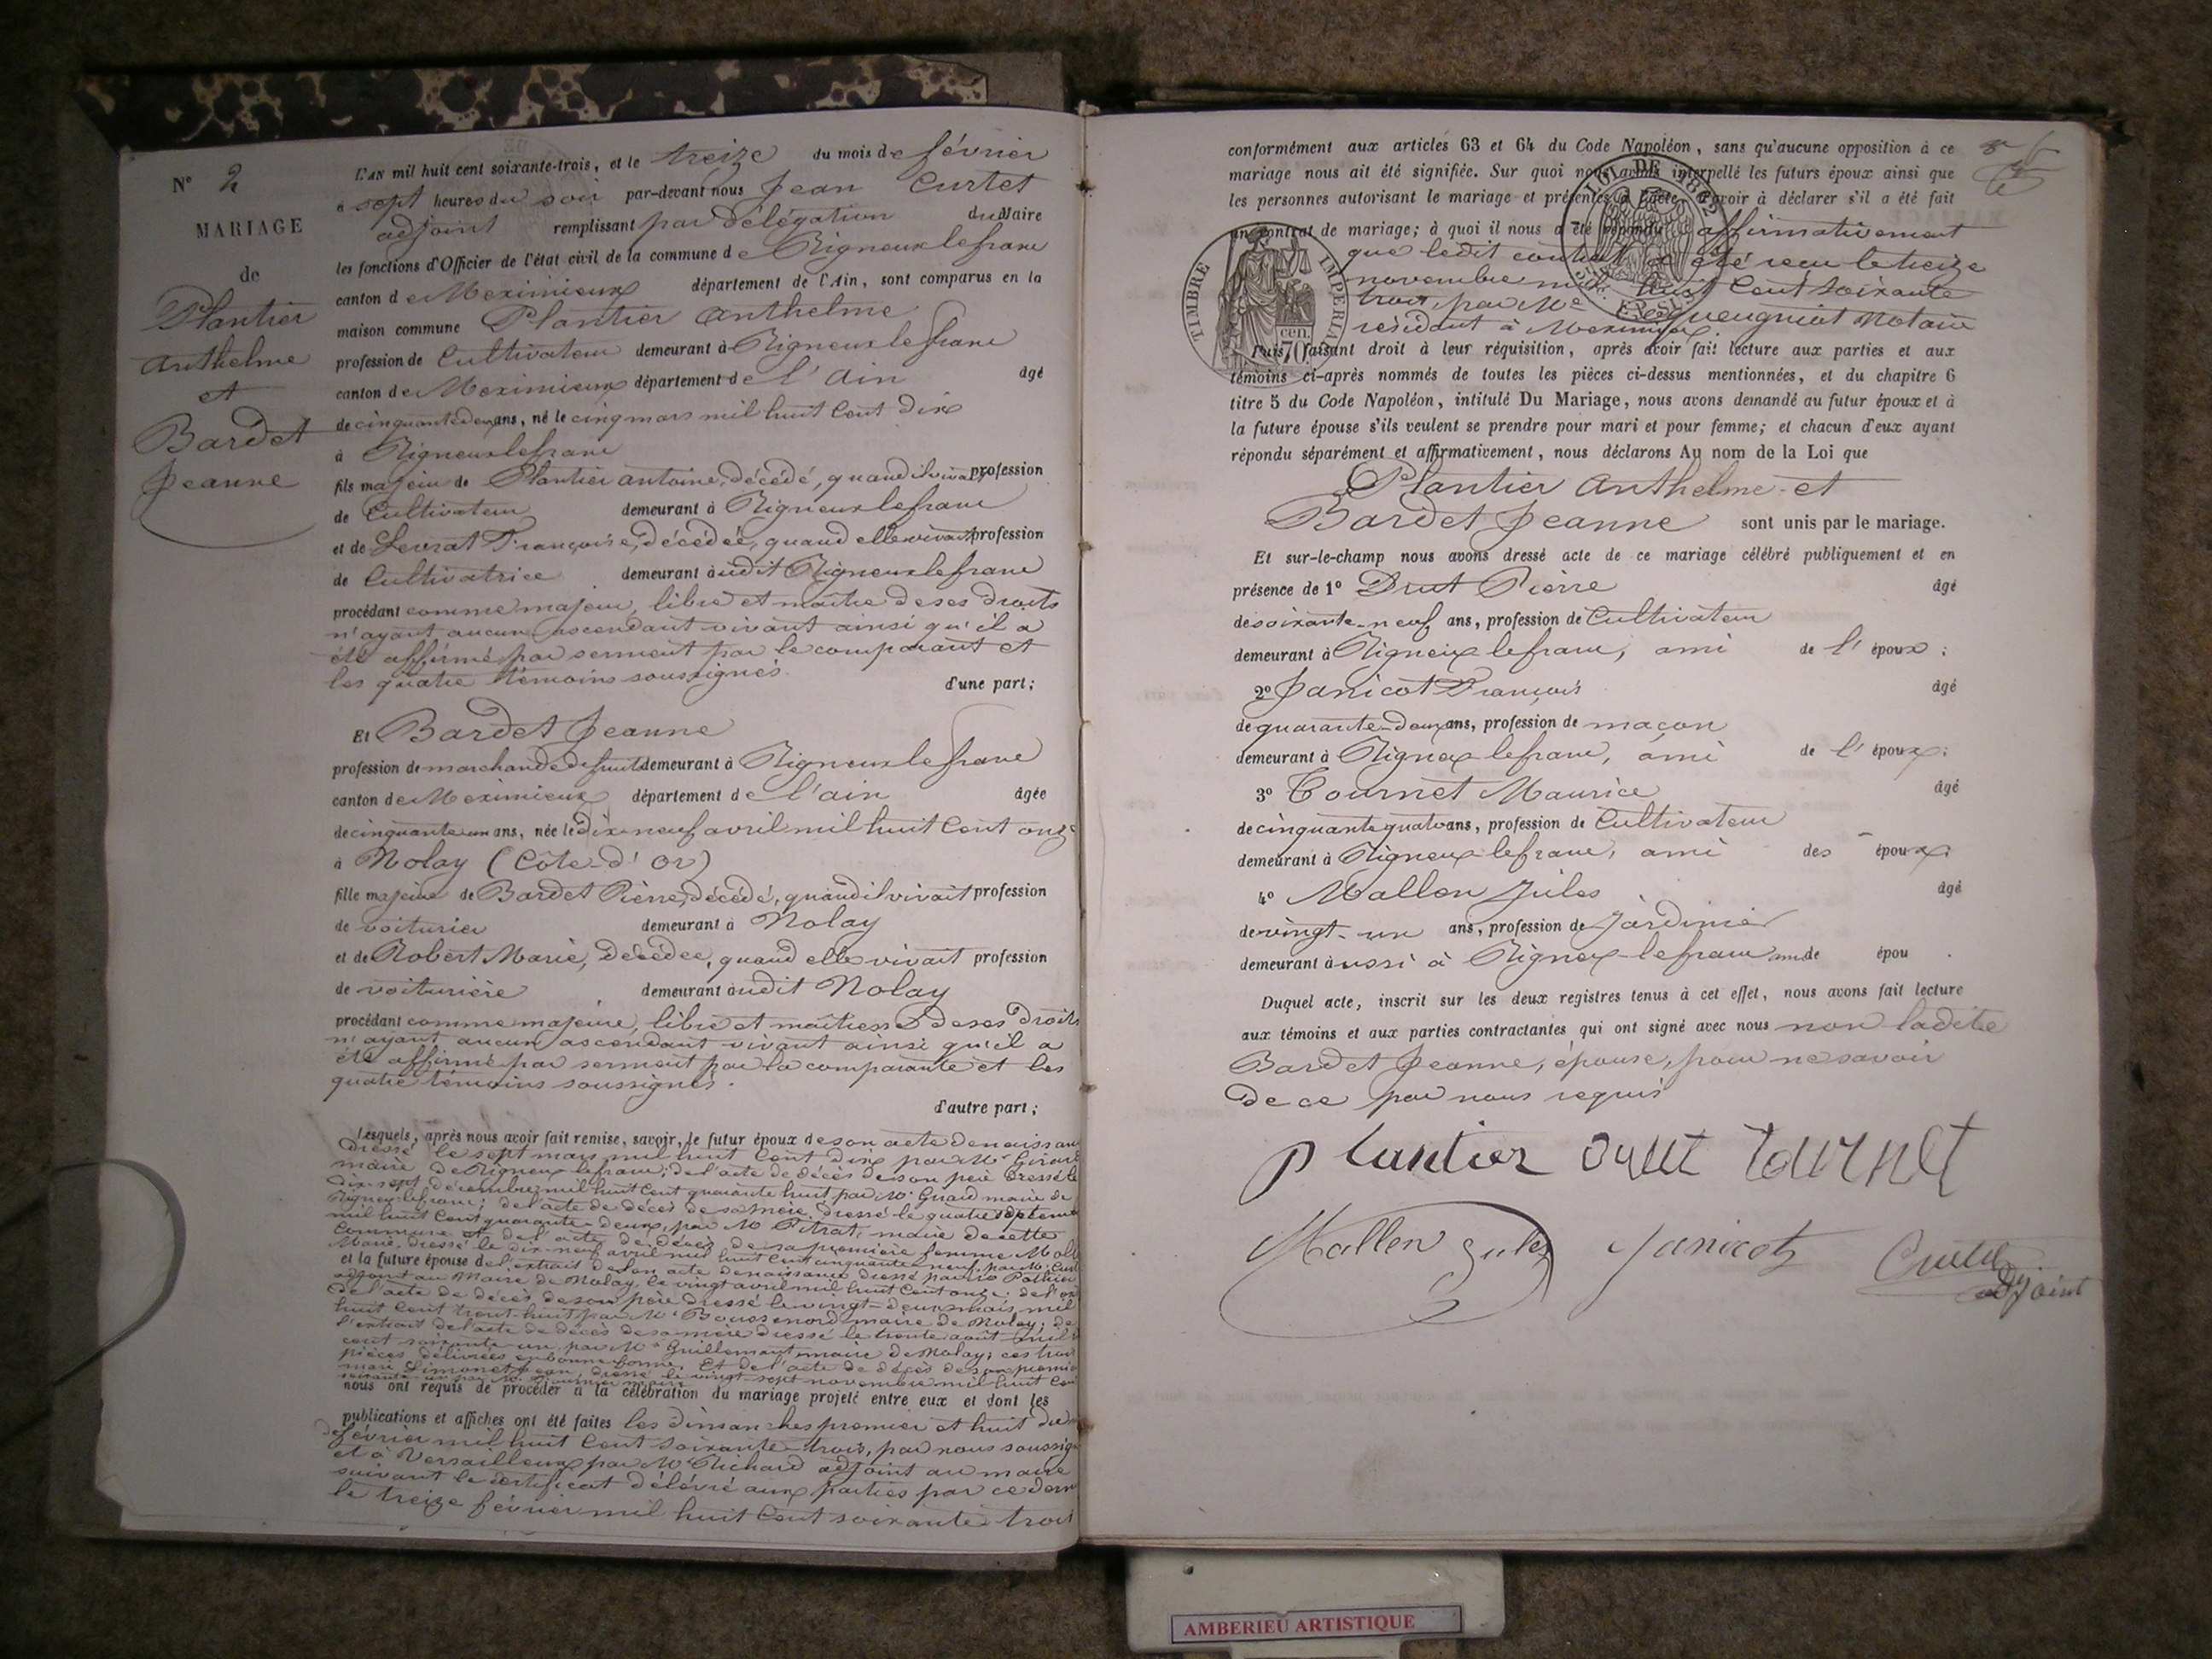 N° 2
MARIAGE
de
Plantier
Anthelme
et
Bardet
Jeanne
L'AN mil huit cent soixante-trois, et le treize du mois de février
à sept heures du soir par-devant nous Jean Curtet
adjoint remplissant par délégation du Maire
les fonctions d'Officier de l'état civil de la commune de Rigneux le franc
canton de Meximieux département de l'Ain, sont comparus en la
maison commune Plantier Anthelme
profession de Cultivateur demeurant à Rigneux le franc
canton de Meximieux département de l'Ain âgé
de cinquante deux ans, né le cinq mars mil huit cent dix
à Rigneux le franc
fils majeur de Plantier antoine, décédé, quand il vivait, profession
de Cultivateur demeurant à Rigneux le franc
et de Levrat Françoise, décédée, quand elle vivait profession
de Cultivatrice demeurant audit Rigneux le franc
procédant comme majeur, libre et maître de ses droits
n'ayant aucun ascendant vivant ainsi qu'il a
été affirmé par serment par le comparant et
les quatre témoins soussignés. d'une part;
Et Bardet Jeanne
profession de marchande de fruits demeurant à Rigneux le franc
canton de Meximieux département de l'ain âgée
de cinquante un ans, née le dix-neuf avril mil huit cent onze
à Nolay (Côte-d'Or)
fille majeure de Bardet Pierre, décédé, quand il vivait profession
de voiturier demeurant à Nolay
et de Robert Marie, décédée, quand elle vivait profession
de voiturière demeurant audit Nolay
procédant comme majeure, libre et maîtresse de ses droits
n'ayant aucun ascendant vivant ainsi qu'il a
été affirmé par serment par la comparante et les
quatre témoins soussignés.
d'autre part;
Lesquels, après nous avoir fait remise, savoir, le futur époux de son acte de naissan
dressé le sept mars mil huit cent dix par Mr Girard
maire de Rigneux le franc; de l'acte de décès de son père dressé le
dix-sept décembre mil huit cent quarante huit par Mr Girard maire de
Rigneux-lefranc; de l'acte de décès de sa mère, dressé le quatre septem
mil huit cent quarante-deux, par Mr Pitrat, maire de cette
commune et de l'acte de décès de sa première femme
Marie, dressé le dix-neuf avril mil huit cent cinquante-neuf, par Mr
et la future épouse de l'extrait de son acte de naissance dressé par Mr
adjoint au Maire de Nolay, le vingt avril mil huit cent onze; de l'ex
de l'acte de décès de son père dressé le vingt-deux mars mil
huit cent trente-huit par Mr maire de Nolay; de
l'extrait de l'acte de décès de sa mère dressé le trente août mil
cent soixante un par Mr Guillemaut maire de Nolay; ces trois
pièces délivrées en bonne forme. Et de l'acte de décès de son premier
mari Simonet Jean, dressé le vingt-sept novembre mil huit cent
nous ont requis de procéder à la célébration du mariage projeté entre eux et dont les
publications et affiches ont été faites les dimanches premier et huit du m
de février mil huit cent soixante-trois, par nous soussig
et à Versailleux par Mr Richard adjoint au maire
suivant le certificat délévré aux parties par ce dern
le treize février mil huit cent soixante trois
conformément aux articles 63 et 64 du Code Napoléon, sans qu'aucune opposition à ce
mariage nous ait été signifiée. Sur quoi nous avons interpellé les futurs époux ainsi que
les personnes autorisant le mariage et présentes à l'acte, d'avoir à déclarer s'il a été fait
un contrat de mariage; à quoi il nous a été répondu affirmativement
que ledit contrat a été reçu le treize
novembre mil huit cent soixante
trois, par Me Queugniot Notaire
résidant à Meximieux.
TIMBRE IMPERIAL
70 cen.
LOI DE 1862
Puis, faisant droit à leur réquisition, après avoir fait lecture aux parties et aux
témoins ci-après nommés de toutes les pièces ci-dessus mentionnées, et du chapitre 6
titre 5 du Code Napoléon, intitulé Du Mariage, nous avons demandé au futur époux et à
la future épouse s'ils veulent se prendre pour mari et pour femme; et chacun d'eux ayant
répondu séparément et affirmativement, nous déclarons Au nom de la Loi que
Plantier Anthelme et
Bardet Jeanne sont unis par le mariage.
Et sur-le-champ nous avons dressé acte de ce mariage célébré publiquement et en
présence de 1° Drut Pierre âgé
de soixante-neuf ans, profession de Cultivateur
demeurant à Rigneux lefranc, ami de l'époux;
2° Janicot François âgé
de quarante-deux ans, profession de maçon
demeurant à Rigneux lefranc, ami de l'époux;
3° Tournet Maurice âgé
de cinquante quatre ans, profession de Cultivateur
demeurant à Rigneux lefranc, ami des époux;
4° Mallen Jules âgé
de vingt-un ans, profession de Jardinier
demeurant aussi à Rigneux-lefranc ami de épou.
Duquel acte, inscrit sur les deux registres tenus à cet effet, nous avons fait lecture
aux témoins et aux parties contractantes qui ont signé avec nous non ladite
Bardet Jeanne, épouse, pour ne savoir
de ce par nous requis
Plantier Drut tournet
Mallen Jules Janicot Curtet
adjoint
AMBERIEU ARTISTIQUE